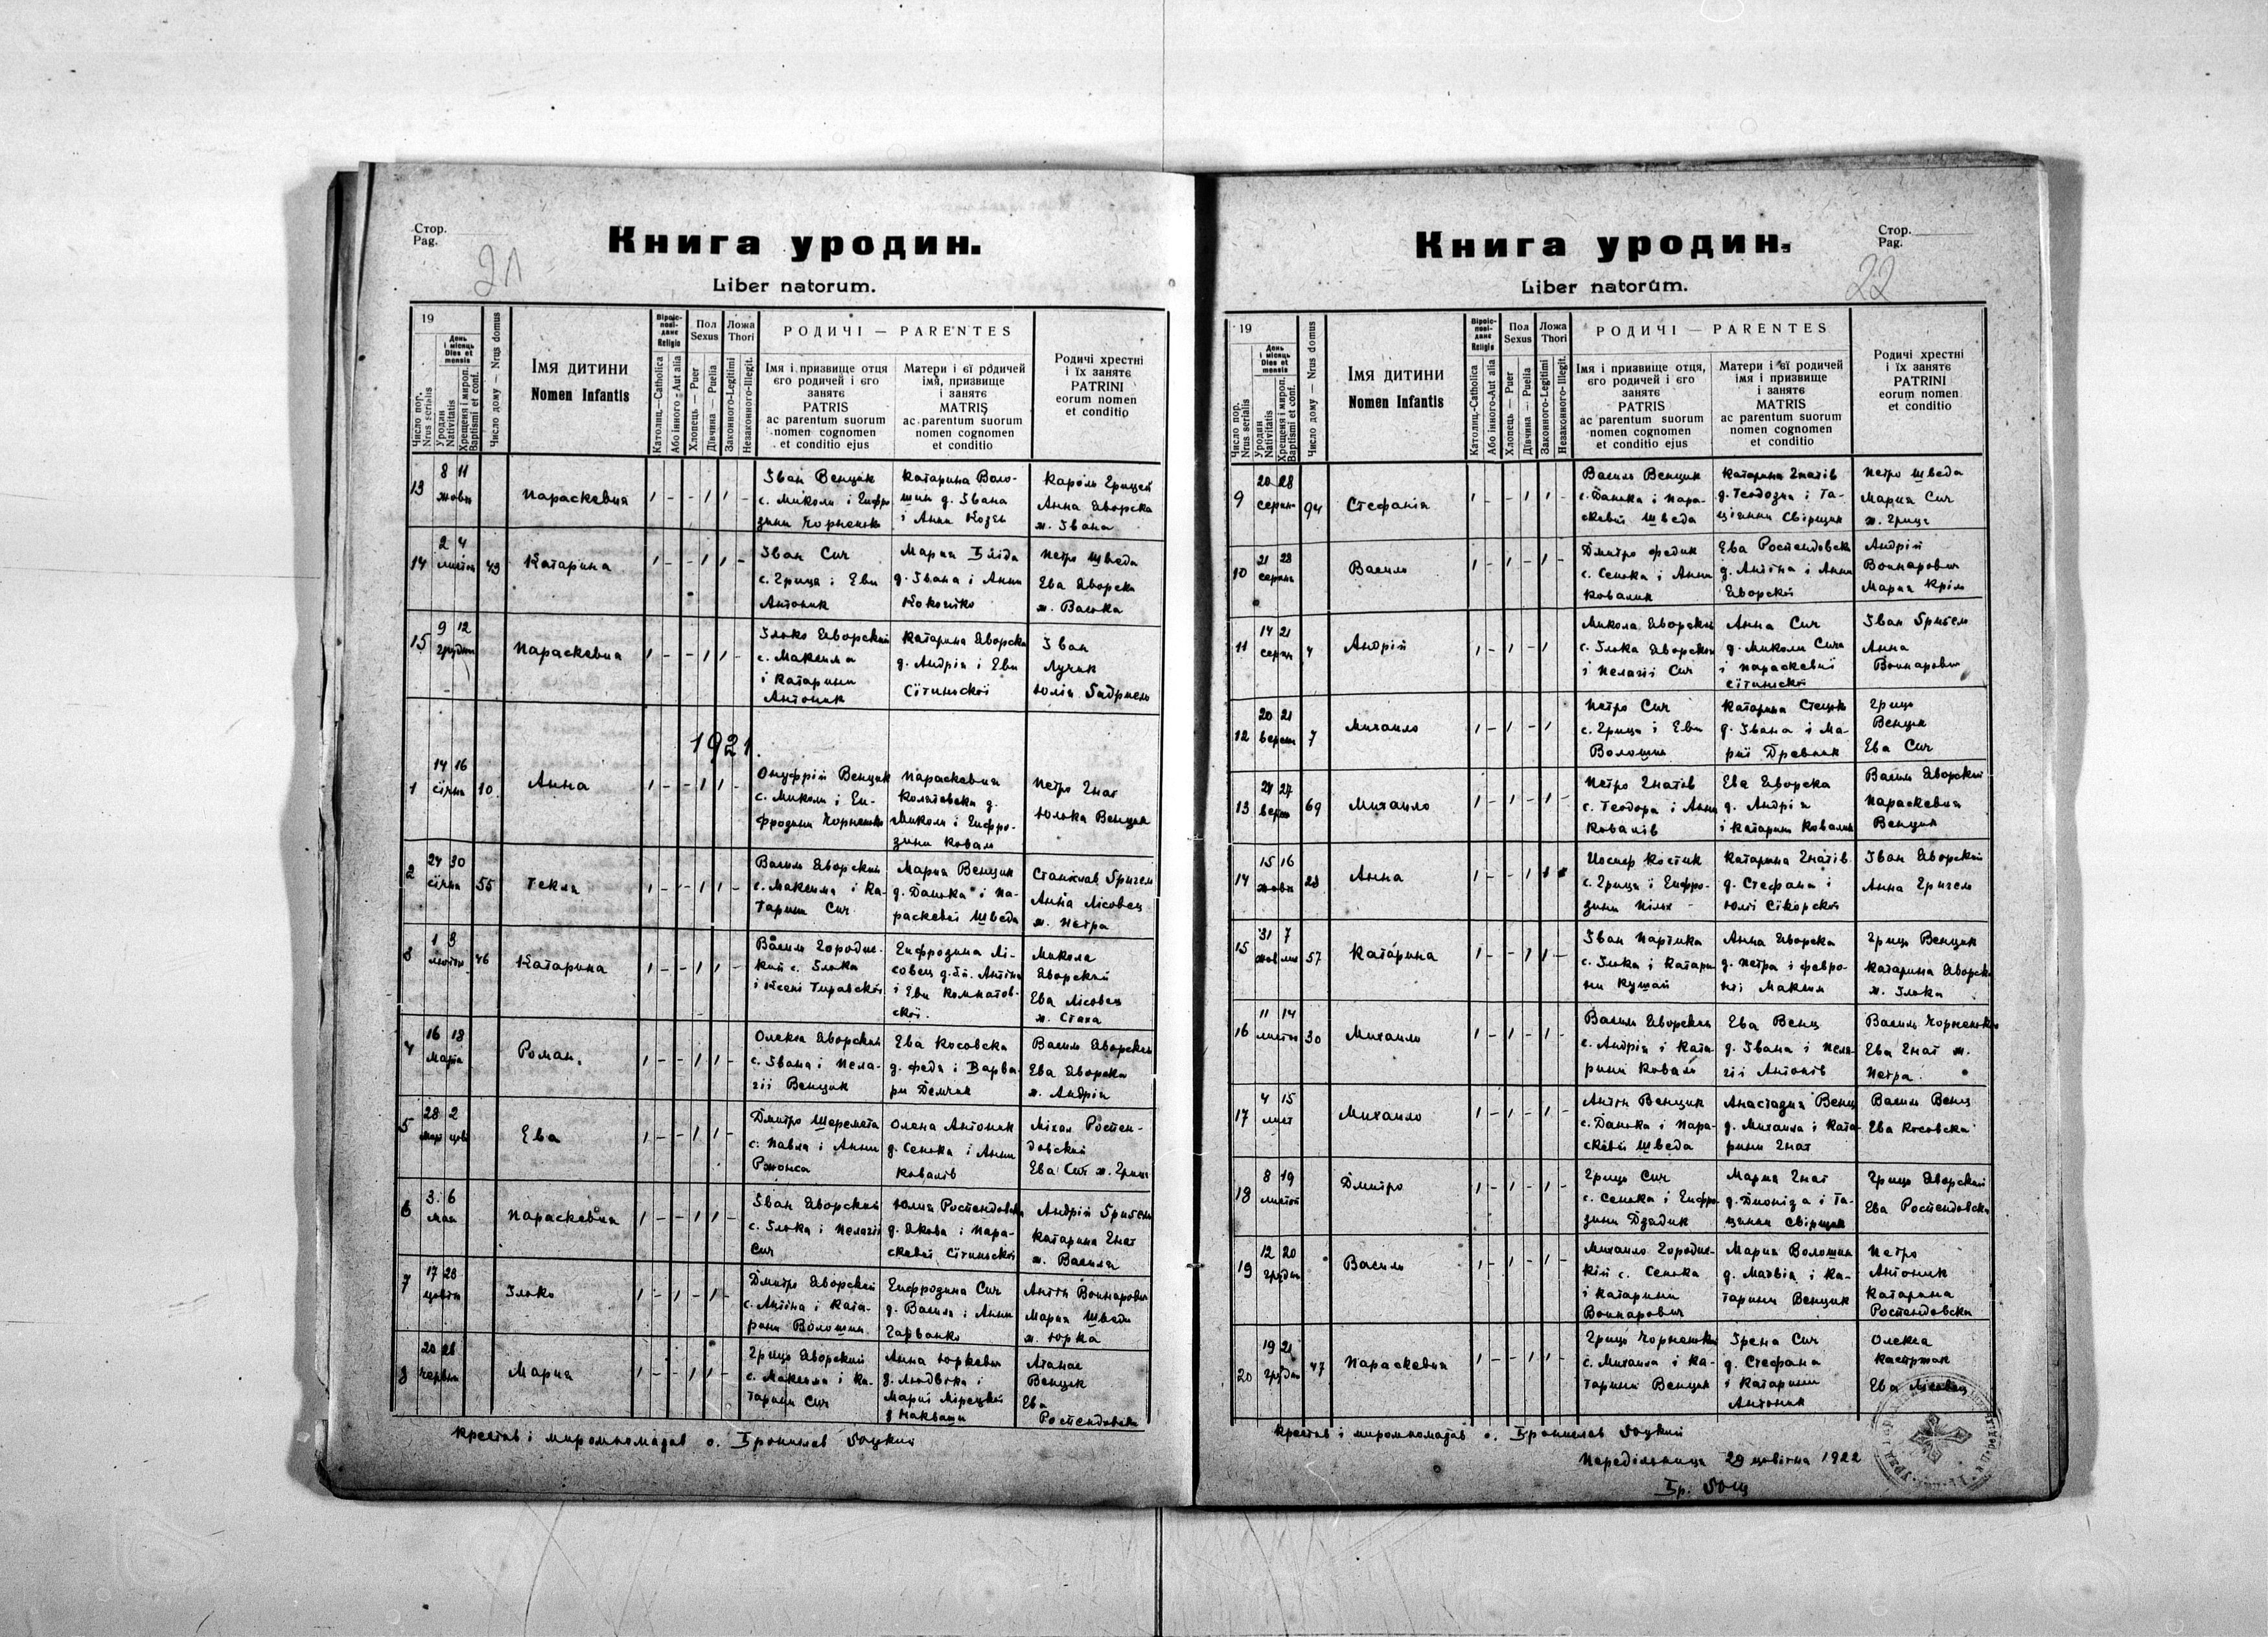 Стор.
Pag.
21
Книга уродин.
Liber natorum.
19
Число пор.
Nrus serialis
День
і місяць
Dies et
mensis
Уродин
Nativitatis
Хрещеня і мироп.
Baptismi et conf.
Число дому — Nrus domus
Імя дитини
Nomen Infantis
Віроіс-
пові-
данє
Religio
Католиц.—Catholica
Або инного - Aut alia
Пол
Sexus
Хлопець — Puer
Дівчина — Puella
Ложа
Thori
Законного-Legitimi
Незаконного-Illegit.
РОДИЧІ — PARENTES
Імя і призвище отця
єго родичей і єго
занятє
PATRIS
ac parentum suorum
nomen cognomen
et conditio ejus
Матери і єї родичей
імя, призвище
і занятє
MATRIS
ac parentum suorum
nomen cognomen
et conditio
Родичі хрестні
і їх занятє
PATRINI
eorum nomen
et conditio
13
8 11
жовт
Параскевия
1 - - 1 1 -
Іван Венцик
с. Миколи і Евфро
зини Чорненька
Катарина Воло-
шин д. Івана
і Анни Козь
Кароль Грицей
Анна Яворска
ж. Івана
14
2 4
листоп
43
Катарина
1 - - 1 1 -
Іван Сич
с. Гриця і Еви
Антоник
Мария Бліда
д. Івана і Анни
Кокочко
Петро Шведа
Ева Яворска
ж. Васька
15
9 12
грудня
Параскевия
1 - - 1 1 -
Ілько Яворский
с. Максима
і Катарини
Антоник
Катарина Яворска
д. Андрія і Еви
Сїтиньскої
Іван
Лучик
Юлія Габриель
1921.
1
14 16
сїчня
10
Анна
1 - - 1 1 -
Онуфрій Венцик
с. Миколи і Ев-
фрозини Чорненька
Параскевия
д.
Миколи і Евфро-
зини Коваль
Петро Гнат
Юлька Венцик
2
24 30
сїчня
55
Текля
1 - - 1 1 -
Василь Яворский
с. Максима і Ка-
тарини Сич
Мария Венцик
д. Данька і Па-
раскевиї Шведа
Станїслав Григель
Анна Лїсовец
ж. Петра
3
1 3
лютого
46
Катарина
1 - - 1 1 -
Василь Городис-
кий с. Ілька
і Ксенї Тиравскої
Евфрозина Лї-
совец д. Антїна
і Еви Комнатов-
скої.
Микола
Яворский
Ева Лїсовец
ж. Стаха
4
16 18
Марта
Роман.
1 - - 1 1 -
Олекса Яворский
с. Івана і Пела-
гії Венцик
Ева Косовска
д. Федя і Варва-
ри Демчик
Василь Яворский
Ева Яворска
ж. Андрія
5
28 2
мар цьв
Ева
1 - - 1 1 -
Дмитро Шеремета
с. Павла і Анни
Олена Антоник
д. Сенька і Анни
Ковалїв
Міхал Ростен-
довский
Ева Сич ж. Гриця
6
3. 6
Мая
Параскевия
1 - - 1 1 -
Іван Яворский
с. Ілька і Пелагії
Сич
Юлия Ростендовска
д. Якова і Пара-
скевиї Сїтиньскої
Андрій
Катарина Гнат
ж. Василя
7
17 28
цьвітн
Ілько
1 - 1 - 1 -
Дмитро Яворский
с. Антїна і Ката-
рини Волошин
Евфрозина Сич
д. Василя і Анни
Гарванко
Антїн Воннарович
Мария Шведа
ж. Юрка
8
20 26
червня
Мария
1 - - 1 1 -
Гриць Яворский
с. Максима і Ка-
тарини Сич
Анна Юркевич
д. Людвіка і
Мариї Мірецкої
з Накваши
Атанас
Венцик
Ева
Ростендовска
Крестив і миропомазав о. Бронислав Гоцкий
Стор.
Pag.
22
Книга уродин.
Liber natorum.
19
Число пор.
Nrus serialis
День
і місяць
Dies et
mensis
Уродин
Nativitatis
Хрещеня і мироп.
Baptismi et conf.
Число дому — Nrus domus
Імя дитини
Nomen Infantis
Віроіс-
пові-
данє
Religio
Католиц.-Catholica
Або инного-Aut alia
Пол
Sexus
Хлопець — Puer
Дівчина — Puella
Ложа
Thori
Законного-Legitimi
Незаконного-Illegit.
РОДИЧІ — PARENTES
Імя і призвище отця,
єго родичей і єго
занятє
PATRIS
ac parentum suorum
nomen cognomen
et conditio ejus
Матери і єї родичей
імя і призвище
і занятє
MATRIS
ac parentum suorum
nomen cognomen
et conditio
Родичі хрестні
і їх занятє
PATRINI
eorum nomen
et conditio
9
20 28
серпн
94
Стефанія
1 - - 1 1 -
Василь Венцик
с. Данька і Пара-
скевиї Шведа
Катарина Гнатїв
д. Теодозия і Та-
цїянни Свірщик
Петро Шведа
Мария Сич
ж. Гриця
10
21 28
серпня
Василь
1 - 1 - 1 -
Дмитро Федик
с. Сенька і Анни
Ковалик
Ева Ростендовска
д. Антїна і Анни
Яворскої
Андрій
Воннарович
Мария Кріль
11
14 21
серпн
4
Андрій
1 - 1 - 1
Микола Яворский
с. Ілька Яворского
і Пелагії Сич
Анна Сич
д. Миколи Сича
і Параскевиї
Сїтиньскої
Іван
Анна
Воннарович
12
20 21
вересн
7
Михайло
1 - 1 - 1
Петро Сич
с. Гриця і Еви
Волошин
Катарина Стецик
д. Івана і Ма-
риї Древняк
Гриць
Венцик
Ева Сич
13
24 27
верес
69
Михайло
1 - 1 - 1 -
Петро Гнатїв
с. Теодора і Анни
Ковалїв
Ева Яворска
д. Андрія
і Катарини Ковалик
Василь Яворский
Параскевия
Венцик
14
15 16
жовт
28
Анна
1 - - 1 1
Йосиф Костик
с. Гриця і Евфро-
зини
Катарина Гнатїв
д. Стефана і
Юлїї Сїкорскої
Іван Яворский
Анна Григель
15
31 7
жов лис
57
Катарина
1 - - 1 1 -
Іван Партика
с. Ілька і Катари
ни Кушай
Анна Яворска
д. Петра і Февро-
нії Максим
Гриць Венцик
Катарина Яворска
ж. Ілька
16
11 14
листоп
30
Михайло
1 - 1 - 1 -
Василь Яворский
с. Андрія і Ката-
рини Коваль
Ева Венц
д. Івана і Пела-
гії Антонїв
Василь Чорненький
Ева Гнат ж.
Петра.
17
4 15
лист
Михайло
1 - 1 - 1 -
Антїн Венцик
с. Данька і Пара-
скевиї Шведа
Анастазия Венц
д. Михайла і Ката-
рини Гнат
Василь Венц
Ева Косовска
18
8 19
листоп
Дмитро
1 - 1 - 1 -
Гриць Сич
с. Сенька і Евфро-
зини Дзадик
Мария Гнат
д. Дионїза і Та-
цянни Свірщик
Гриць Яворский
Ева Ростендовска
19
12 20
грудня
Василь
1 - 1 - 1 -
Михайло Городис-
кий с. Сенька
і Катарини
Воннарович
Мария Волошин
д. Матвія і Ка-
тарини Венцик
Петро
Антоник
Катарина
Ростендовска
20
19 21
грудня
47
Параскевия
1 - - 1 1 -
Гриць Чорненький
с. Михайла і Ка-
тарини Венцик
Ірена Сич
д. Стефана
і Катарини
Антоник
Олекса
Костржак
Ева Лїсовец
Крестив і миропомазав о. Бронислав Гоцкий
Передїльниця 29 цьвітня 1922
Бр. Гоц